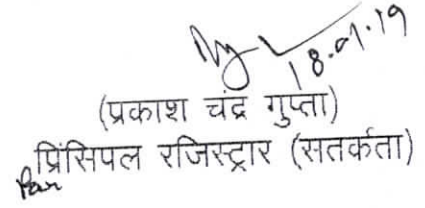 18.01.19
(प्रकाश चंद्र गुप्ता)
प्रिंसिपल रजिस्ट्रार (सतर्कता)